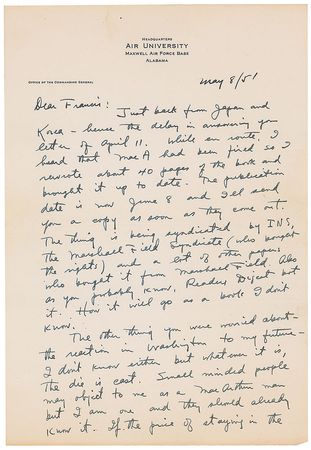 HEADQUARTERS
AIR UNIVERSITY
MAXWELL AIR FORCE BASE
ALABAMA
OFFICE OF THE COMMANDING GENERAL
may 8/51
Dear Francis: Just back from Japan and
Korea – hence the delay in answering you
letter of April 11. While en route, I
heard that MacA had been fired so I
rewrote about 40 pages of the book and
brought it up to date. The publication
date is now June 8 and I'll send
you a copy as soon as they come out.
The thing is being syndicated by INS,
the Marshall Field Syndicate (who bought
the rights) and a lot of other papers
who bought it from Marshall Field. Also
as you probably know, Readers Digest bot
it. How it will go as a book I don't
know.
The other thing you were worried about –
the reaction in Washington to my future –
I don't know either but whatever it is,
the die is cast. Small minded people
may object to me as a MacArthur man
but I am one and they should already
know it. If the price of staying in the